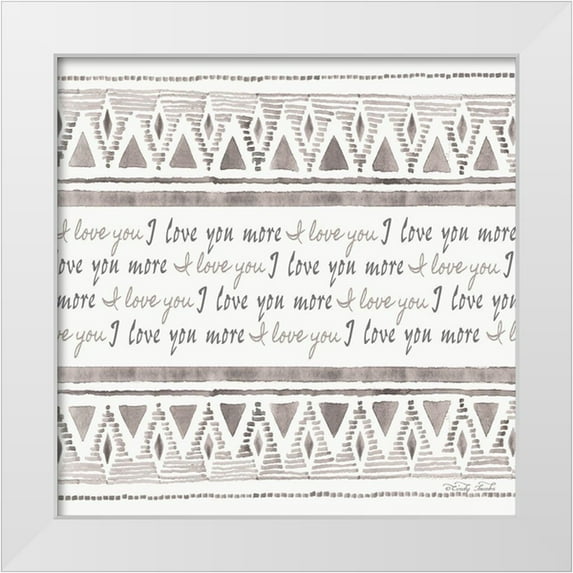 I love you I love you more I love you I love you more
ove you more I love you I love you more I love you I
more I love you I love you more I love you I love you
e you I love you more I love you I love you more I l
©Cindy Jacobs